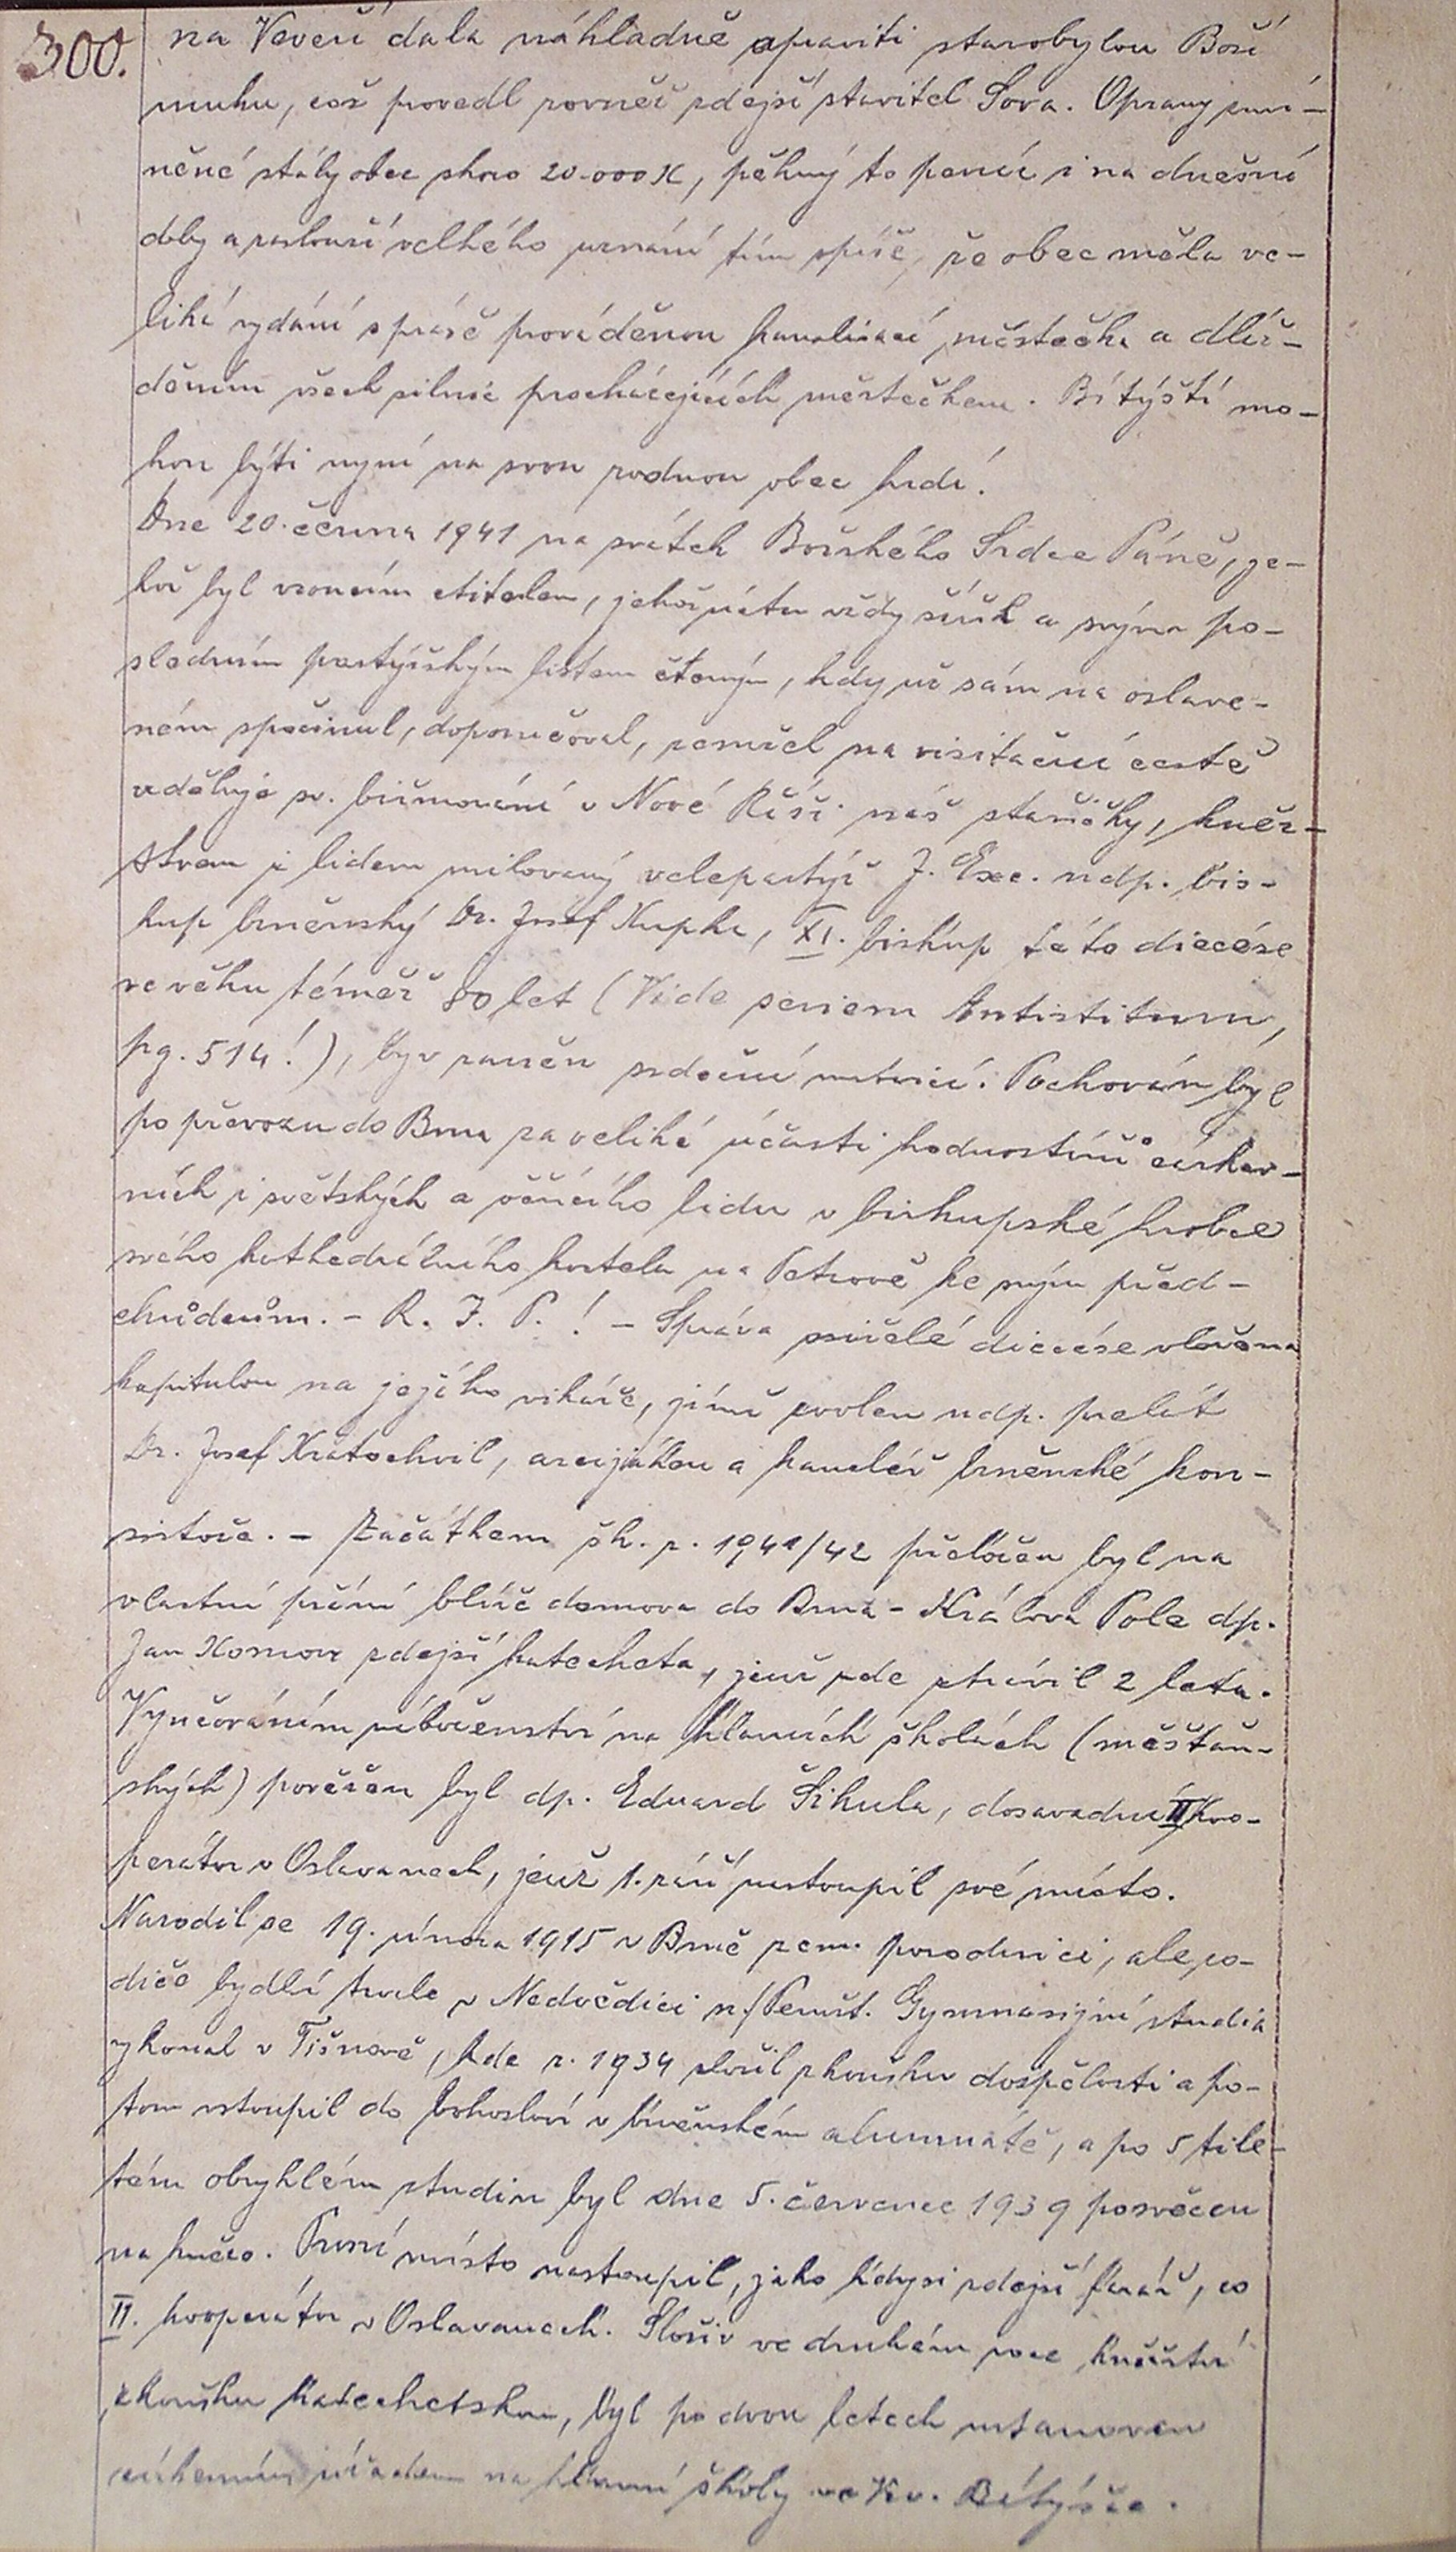 300.
na Veveří dala nákladně opraviti starobylou Boží
muku, což provedl rovněž zdejší stavitel Sova. Opravy zmí-
něné stály obec skoro 20.000 K, pěkný to peníz i na dnešní
doby a zaslouží velkého uznání tím spíše, že obec měla ve-
liká vydání s právě prováděnou kanalisací městečka a dláž-
děním všech silnic procházejících městečkem. Bítýští mo-
hou býti nyní na svou rodnou obec hrdi.
Dne 20. června 1941 na svátek Božského Srdce Páně, je-
hož byl vroucím ctitelem, jehož úctu vždy šířil a svým po-
sledním pastýřským listem čteným, kdy už sám na oslave-
ném spočinul, doporučoval, zemřel na visitační cestě
uděluje sv. biřmování v Nové Říši náš stařičký, kněž-
stvem i lidem milovaný velepastýř J. Exc. ndp. bis-
kup brněnský Dr. Josef Kupka, XI. biskup této diecése
ve věku téměř 80 let (Vide seriem Antistitum,
pg. 514!), byv raněn srdeční mrtvicí. Pochován byl
po převozu do Brna za veliké účasti hodnostářů církev-
ních i světských a věřícího lidu v biskupské hrobce
svého kathedrálního kostela na Petrově ke svým před-
chůdcům. - R. I. P.! - Správa osiřelé diecése vložena
kapitulou na jejího vikáře, jímž zvolen ndp. prelát
Dr. Josef Kratochvil, arcijáhen a kancléř brněnské kon-
sistoře. - Začátkem šk. r. 1941/42 přeložen byl na
vlastní přání blíže domova do Brna - Králova Pole dp.
Jan zdejší katecheta, jenž zde ztrávil 2 léta.
Vyučováním náboženství na hlavních školách (měšťan-
ských) pověřen byl dp. Eduard Šikula, dosavadní II. koo-
perátor v Oslavanech, jenž 1. září nastoupil své místo.
Narodil se 19. února 1915 v Brně zem. porodnici, ale ro-
diče bydlí trvale v Nedvědici n./Pernšt. Gymnasijní studia
vykonal v Tišnově, kde r. 1934 složil zkoušku dospělosti a po-
tom vstoupil do bohosloví v brněnském alumnátě, a po 5tile-
tém obvyklém studiu byl dne 5. července 1939 posvěcen
na kněze. První místo nastoupil, jako kdysi zdejší farář, co
II. kooperátor v Oslavanech. Složiv ve druhém roce kněžství
zkoušku katechetskou, byl po dvou letech ustanoven
církevním úřadem na hlavní školy ve Vev. Bítýšce.